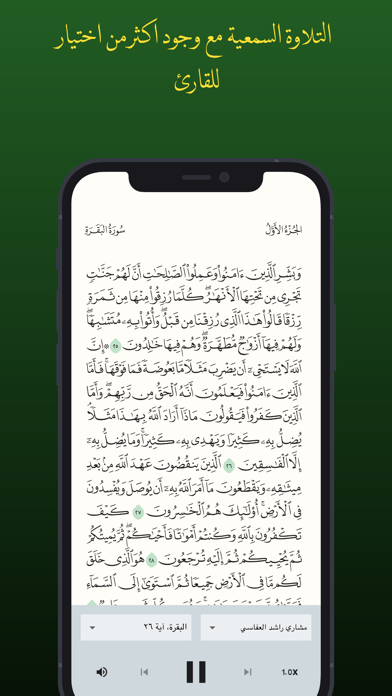 التلاوة السمعية مع وجود اكثر من اختيار
للقارئ
الجُزْءُ الأَوَّلُ
سُورَةُ البَقَرَةِ
وَبَشِّرِ الَّذِينَ ءَامَنُوا وَعَمِلُوا الصَّالِحَاتِ أَنَّ لَهُمْ جَنَّاتٍ
تَجْرِي مِن تَحْتِهَا الْأَنْهَارُ كُلَّمَا رُزِقُوا مِنْهَا مِن ثَمَرَةٍ
رِّزْقًا قَالُوا هَذَا الَّذِي رُزِقْنَا مِن قَبْلُ وَأُتُوا بِهِ مُتَشَابِهًا
وَلَهُمْ فِيهَا أَزْوَاجٌ مُّطَهَّرَةٌ وَهُمْ فِيهَا خَالِدُونَ ٢٥ ۞ إِنَّ
اللَّهَ لَا يَسْتَحْيِ أَن يَضْرِبَ مَثَلًا مَّا بَعُوضَةً فَمَا فَوْقَهَا فَأَمَّا
الَّذِينَ ءَامَنُوا فَيَعْلَمُونَ أَنَّهُ الْحَقُّ مِن رَّبِّهِمْ وَأَمَّا
الَّذِينَ كَفَرُوا فَيَقُولُونَ مَاذَا أَرَادَ اللَّهُ بِهَذَا مَثَلًا
يُضِلُّ بِهِ كَثِيرًا وَيَهْدِي بِهِ كَثِيرًا وَمَا يُضِلُّ بِهِ
إِلَّا الْفَاسِقِينَ ٢٦ الَّذِينَ يَنقُضُونَ عَهْدَ اللَّهِ مِن بَعْدِ
مِيثَاقِهِ وَيَقْطَعُونَ مَا أَمَرَ اللَّهُ بِهِ أَن يُوصَلَ وَيُفْسِدُونَ
فِي الْأَرْضِ أُولَئِكَ هُمُ الْخَاسِرُونَ ٢٧ كَيْفَ
تَكْفُرُونَ بِاللَّهِ وَكُنتُمْ أَمْوَاتًا فَأَحْيَاكُمْ ثُمَّ يُمِيتُكُمْ
ثُمَّ يُحْيِيكُمْ ثُمَّ إِلَيْهِ تُرْجَعُونَ ٢٨ هُوَ الَّذِي خَلَقَ
لَكُم مَّا فِي الْأَرْضِ جَمِيعًا ثُمَّ اسْتَوَى إِلَى السَّمَاءِ
مشاري راشد العفاسي
البقرة، آية ٢٦
1.0X